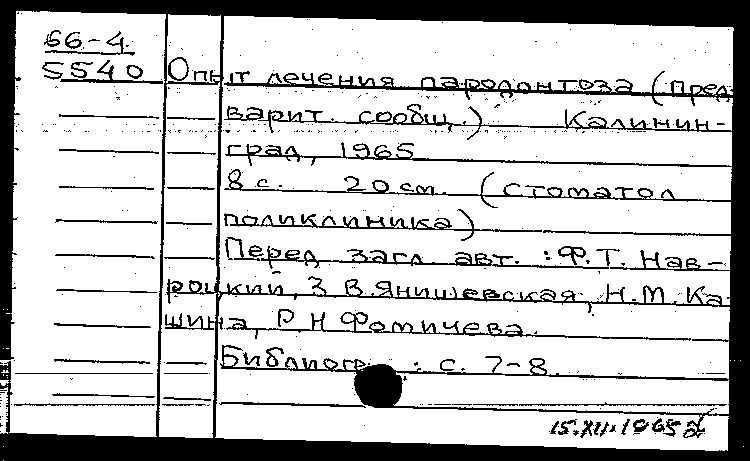 66-4
5540 Опыт лечения пародонтоза (Пред-
варит. сообщ.) Калинин-
град, 1965
8 с. 20 см. (Стоматол
поликлиника)
Перед загл. авт.: Ф.Т. Нав-
роцкий, З.В. Янишевская, Н.М. Ка-
шина, Р.Н Фомичева.
Библиогр.: с. 7-8.
15.XII.1965